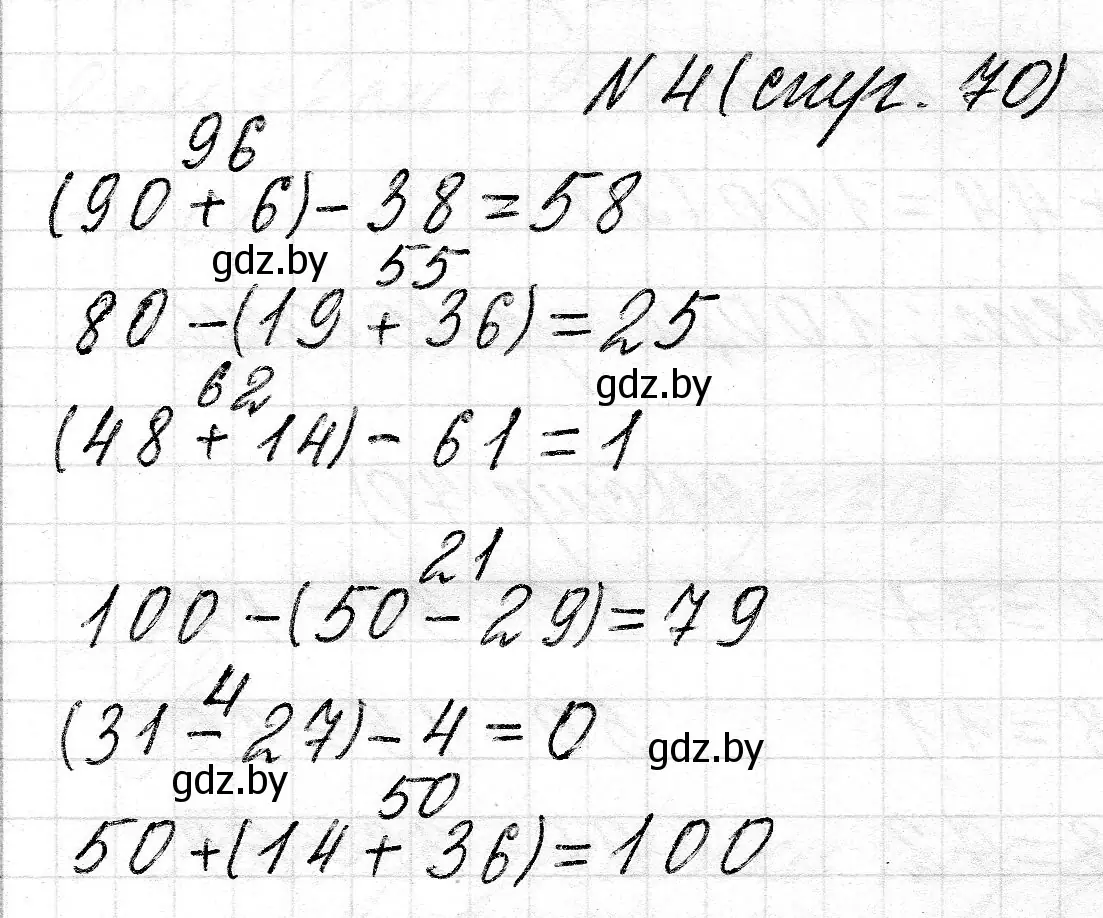 N 4 (стр. 70)
96
(90 + 6) - 38 = 58
gdz.by
55
80 - (19 + 36) = 25
gdz.by
62
(48 + 14) - 61 = 1
21
100 - (50 - 29) = 79
4
(31 - 27) - 4 = 0
gdz.by
gdz.by
50
50 + (14 + 36) = 100